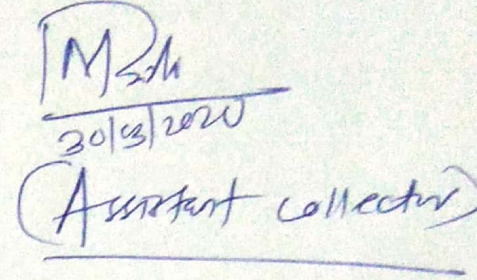 30/03/2020
(Assistant collector)